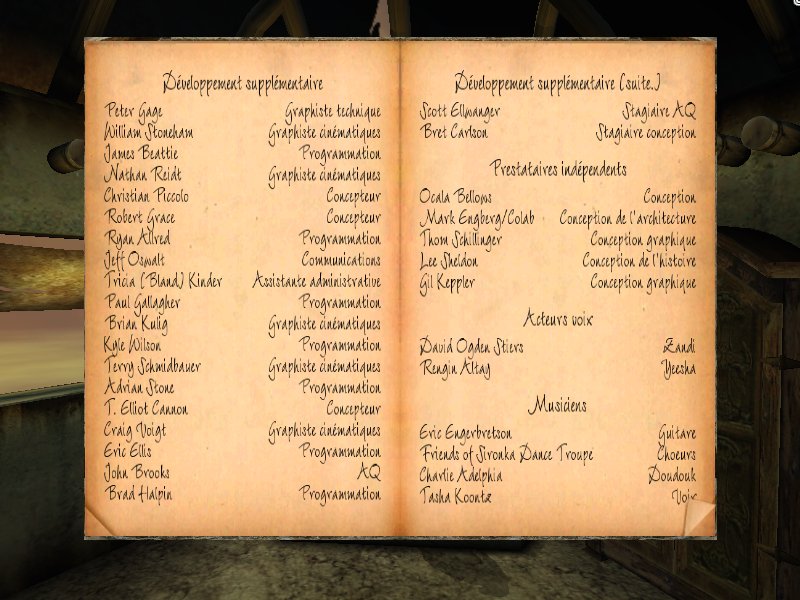 Développement supplémentaire
Peter Gage Graphiste technique
William Stoneham Graphiste cinématiques
James Beattie Programmation
Nathan Reidt Graphiste cinématiques
Christian Piccolo Concepteur
Robert Grace Concepteur
Ryan Allred Programmation
Jeff Oswalt Communications
Tricia (Bland) Kinder Assistante administrative
Paul Gallagher Programmation
Brian Kulig Graphiste cinématiques
Kyle Wilson Programmation
Terry Schmidbauer Graphiste cinématiques
Adrian Stone Programmation
T. Elliot Cannon Concepteur
Craig Voigt Graphiste cinématiques
Eric Ellis Programmation
John Brooks AQ
Brad Halpin Programmation
Développement supplémentaire (suite.)
Scott Ellwanger Stagiaire AQ
Bret Carlson Stagiaire conception
Prestataires indépendents
Ocala Bellows Conception
Mark Engberg/Colab Conception de l'architecture
Thom Schillinger Conception graphique
Lee Sheldon Conception de l'histoire
Gil Keppler Conception graphique
Acteurs voix
David Ogden Stiers Zandi
Rengin Altay Yeesha
Musiciens
Eric Engerbretson Guitare
Friends of Sironka Dance Troupe Choeurs
Charlie Adelphia Doudouk
Tasha Koontz Voix